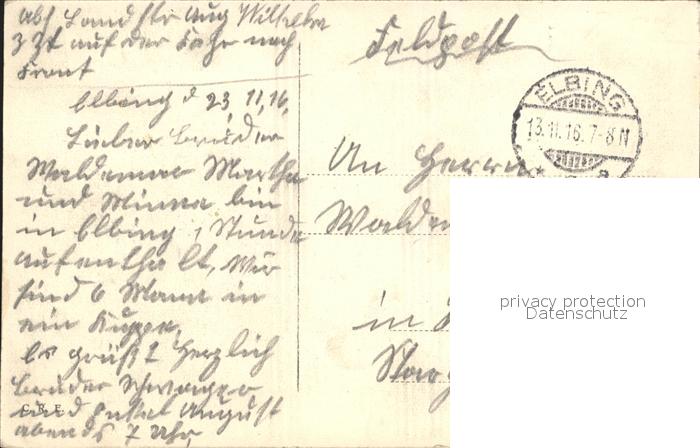 Abs Landstr Aug Wilhelm
z Zt auf der Fahr nach
Front
Elbing d 23, 11, 16,
Lieber Bruder
Waldemar Martha
und Minna bin
in Elbing 1 Stunde
aufenthalt, Wir
sind 6 Mann in
ein Kuppe,
Es grüßt Herzlich
Bruder Schwager
und Onkel August
abends 7 Uhr,
Feldpost
ELBING
13.11.16.7-8N
An Herrn
in
privacy protection
Datenschutz